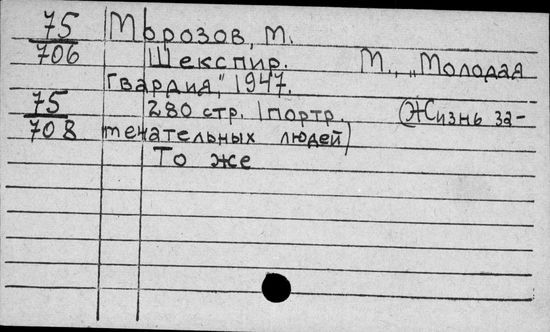 75 Морозов, М.
706 Шекспир. М., „Молодая
Гвардия," 1947.
75 280 стр. 1 портр. (Жизнь за-
708 мечательных людей)
То же